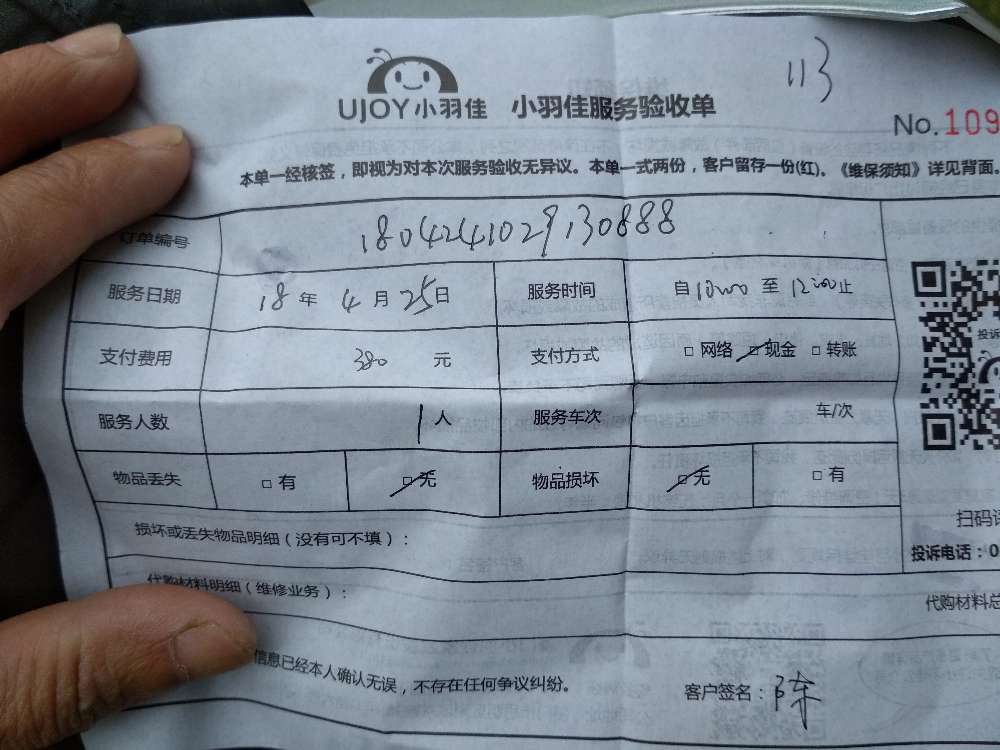 113
UJOY小羽佳 小羽佳服务验收单
No.109
本单一经核签，即视为对本次服务验收无异议。本单一式两份，客户留存一份(红)。《维保须知》详见背面。
订单编号 1804241029130888
服务日期 18年4月25日 服务时间 自10:00至12:00止
支付费用 380 元 支付方式 □网络 □现金 □转账
服务人数 1人 服务车次 车/次
物品丢失 □有 □无 物品损坏 □无 □有
投诉
损坏或丢失物品明细（没有可不填）：
扫码
投诉电话：0
代购材料明细（维修业务）：
代购材料总
信息已经本人确认无误，不存在任何争议纠纷。
客户签名：陈